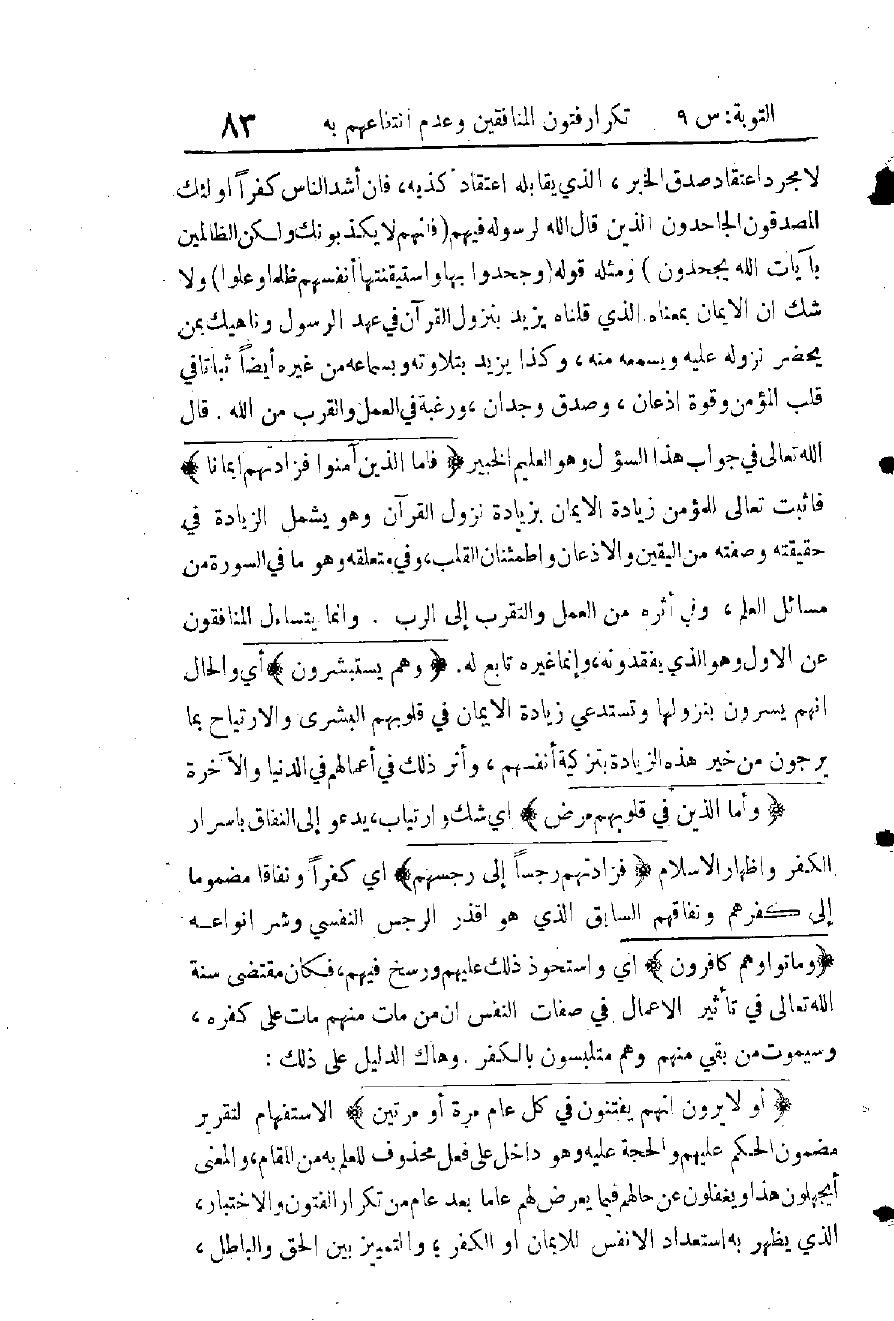 التوبة: س ٩ تكرار فتون المنافقين وعدم انتفاعهم به ٨٣
لا مجرد اعتقاد صدق الخبر ، الذي يقابله اعتقاد كذبه، فان أشد الناس كفراً اولئك
المصدقون الجاحدون الذين قال الله لرسوله فيهم (فانهم لا يكذبونك ولكن الظالمين
بآيات الله يجحدون ) ومثله قوله (وجحدوا بها واستيقنتها أنفسهم ظلما وعلوا) ولا
شك ان الايمان بمعناه الذي قلناه يزيد بنزول القرآن في عهد الرسول وناهيك بمن
يحضر نزوله عليه ويسمعه منه ، وكذا يزيد بتلاوته وبسماعه من غيره أيضاً ثباتا في
قلب المؤمن وقوة اذعان ، وصدق وجدان ، ورغبة في العمل والقرب من الله . قال
الله تعالى في جواب هذا السؤل وهو العليم الخبير ﴿ فاما الذين آمنوا فزادتهم ايمانا ﴾
فاثبت تعالى للمؤمن زيادة الايمان بزيادة نزول القرآن وهو يشمل الزيادة في
حقيقته وصفته من اليقين والاذعان واطمئنان القلب، وفي متعلقه وهو ما في السورة من
مسائل العلم ، وفي أثره من العمل والتقرب إلى الرب . وانما يتساءل المنافقون
عن الاول وهو الذي يفقدونه، وإنما غيره تابع له. ﴿ وهم يستبشرون ﴾ أي والحال
انهم يسرون بنزولها وتستدعي زيادة الايمان في قلوبهم البشرى والارتياح بما
يرجون من خير هذه الزيادة بتزكية أنفسهم ، وأثر ذلك في أعمالهم في الدنيا والآخرة
﴿ وأما الذين في قلوبهم مرض ﴾ اي شك وارتياب، يدعو إلى النفاق باسرار
الكفر واظهار الاسلام ﴿ فزادتهم رجساً إلى رجسهم﴾ اي كفراً ونفاقا مضموما
إلى كفرهم ونفاقهم السابق الذي هو اقذر الرجس النفسي وشر انواعـه
﴿وماتوا وهم كافرون ﴾ اي واستحوذ ذلك عليهم ورسخ فيهم، فكان مقتضى سنة
الله تعالى في تأثير الاعمال في صفات النفس ان من مات منهم مات على كفره ،
وسيموت من بقي منهم وهم متلبسون بالكفر . وهاك الدليل على ذلك :
﴿ أو لا يرون انهم يفتنون في كل عام مرة أو مرتين ﴾ الاستفهام لتقرير
مضمون الحكم عليهم والحجة عليه وهو داخل على فعل محذوف للعلم به من المقام، والمعنى
أيجهلون هذا ويغفلون عن حالهم فيما يعرض لهم عاما بعد عام من تكرار الفتون والاختبار ،
الذي يظهر به استعداد الانفس للايمان او الكفر ، والتمييز بين الحق والباطل ،